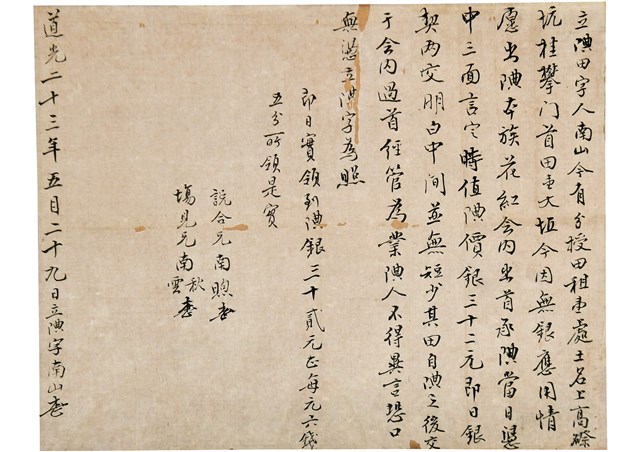 立典田字人南山今有分授田租壹處土名上高磜
坑桂攀门首田壹大坵今因無銀應用情
愿出典本族花紅会内出首承典當日憑
中三面言定時值典價銀三十二元即日銀
契两交明白中间並無短少其田自典之後交
于会内過首经管為業典人不得異言恐口
無憑立典字為照
即日實領到典銀三十貳元正每元六錢
五分所領是實
説合兄南照
塲見兄南秋雲
道光二十三年五月二十九日立典字南山